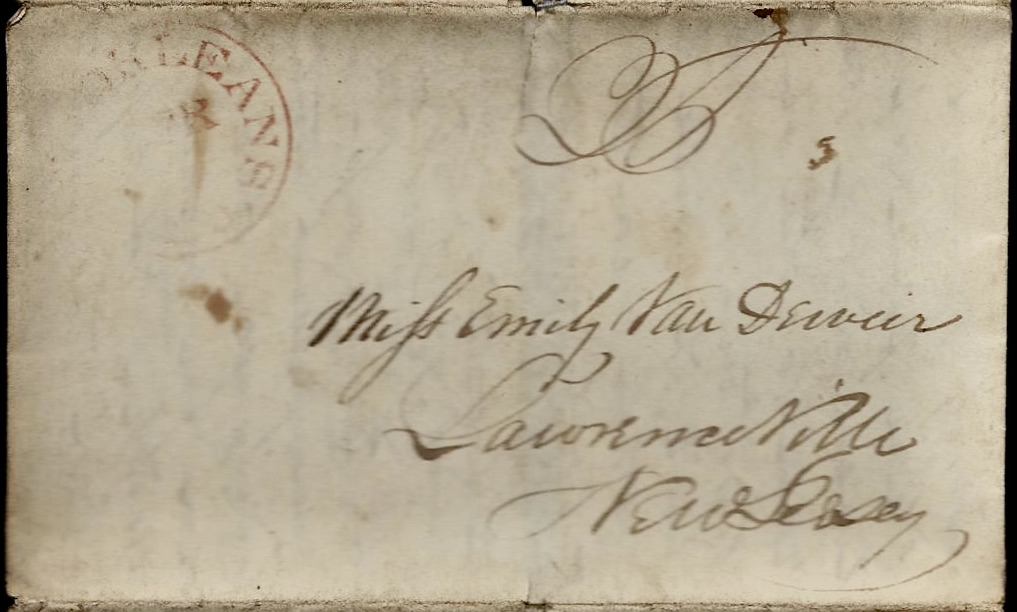 ORLEANS
Miss Emily Van Derveir
Lawrenceville
New Jersey